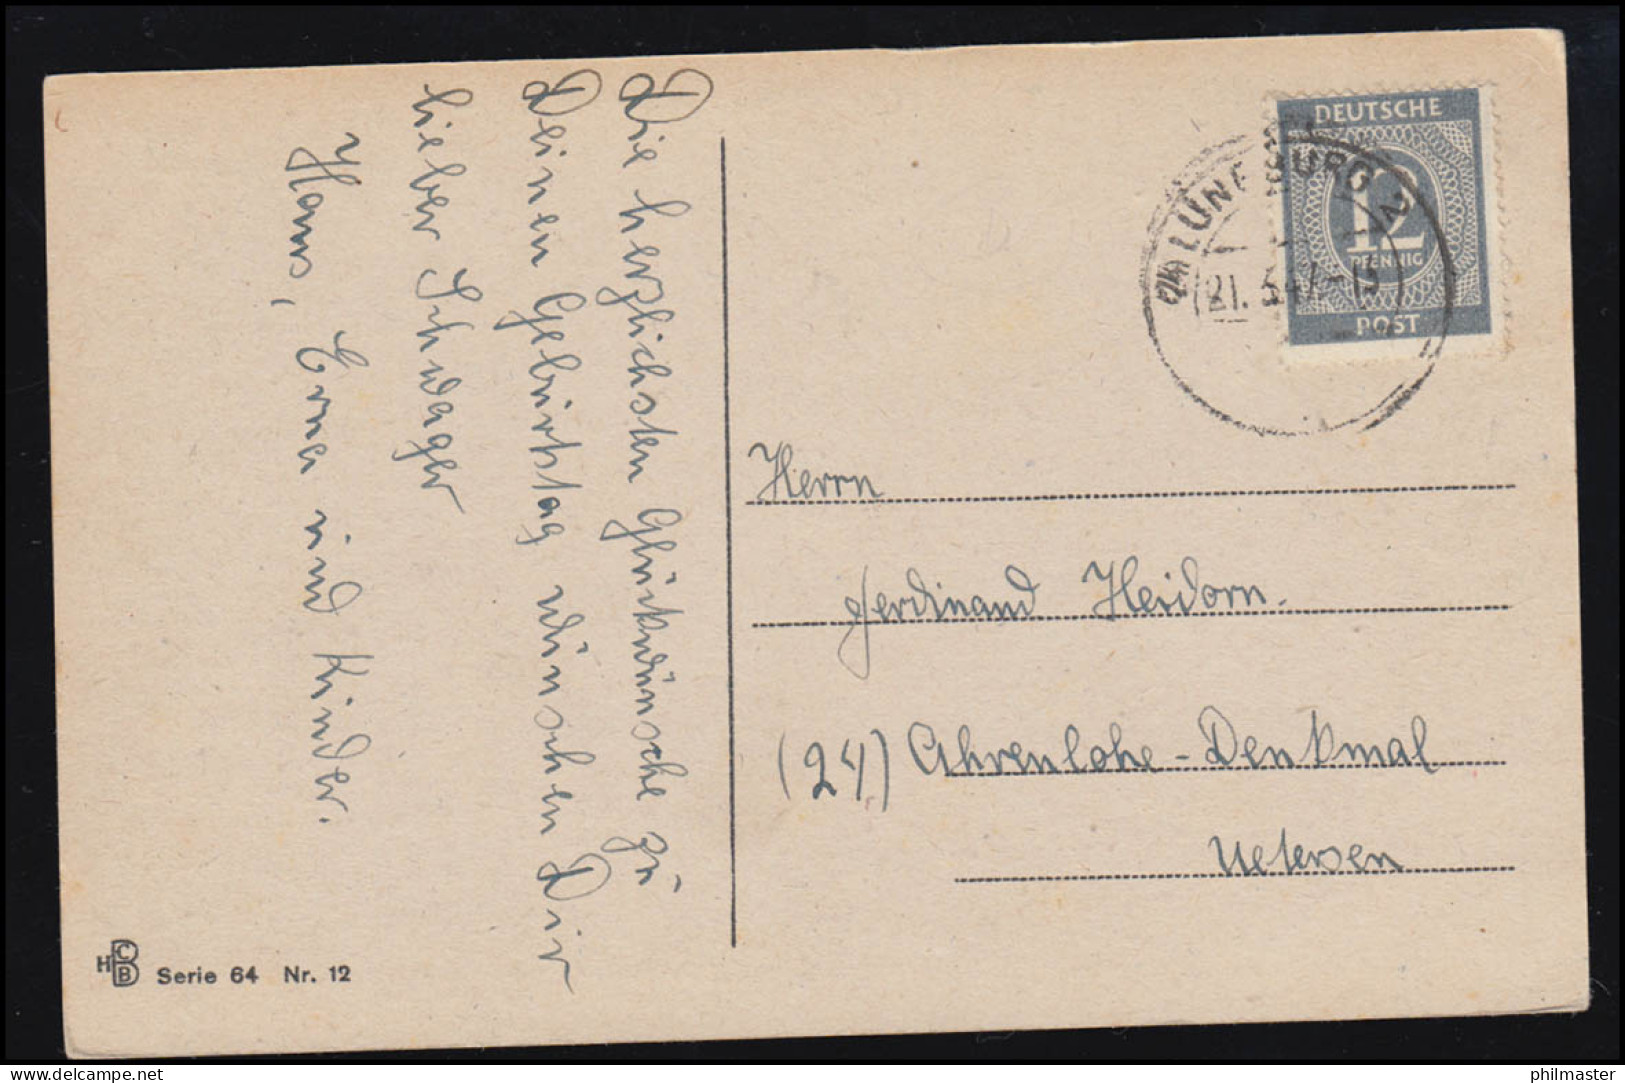 Die herzlichsten Glückwünsche zu
Deinen Gebürtstag wünschen Dir
lieber Schwager
Hans, Erna und Kinder.
DEUTSCHE
12
PFENNIG
POST
LÜNEBURG 2
21. 3.47
Herrn
Ferdinand Heidorn.
(24) Ahrenlohe-Denkmal
Uetersen
HCBB Serie 64 Nr. 12
philmaster